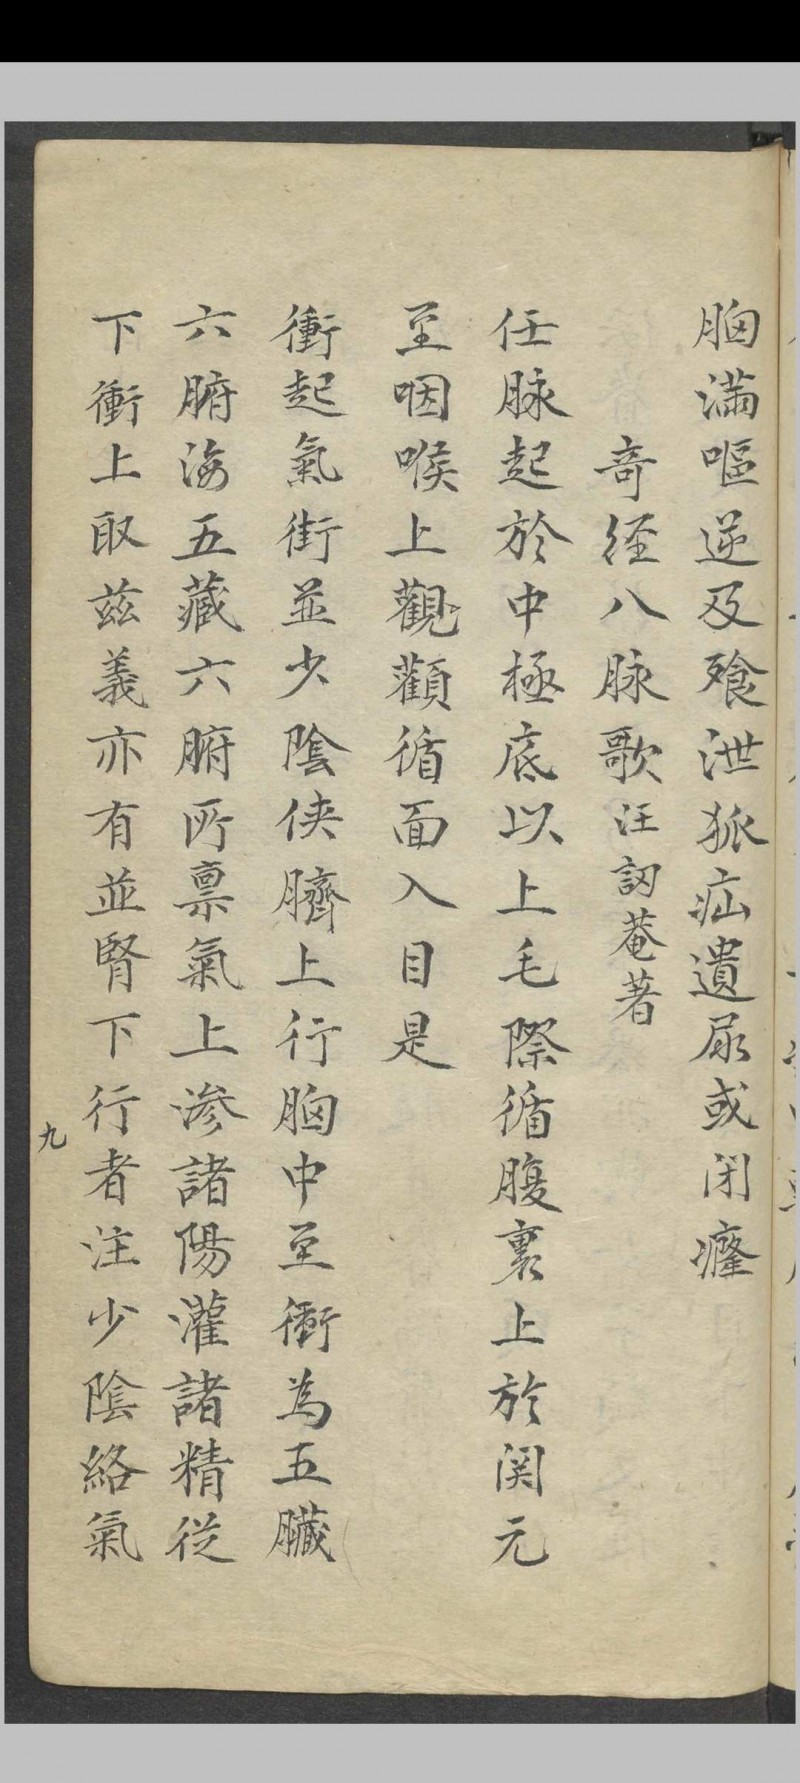 胸滿嘔逆及飱泄狐疝遺尿或闭癃
竒经八脉歌汪訒菴著
任脉起於中極底以上毛際循腹裏上於関元
至咽喉上觀顴循面入目是
衝起氣街並少隂侠臍上行胸中至衝為五臓
六腑海五藏六腑所禀氣上渗諸陽灌諸精從
下衝上取兹義亦有並腎下行者注少隂絡氣
九